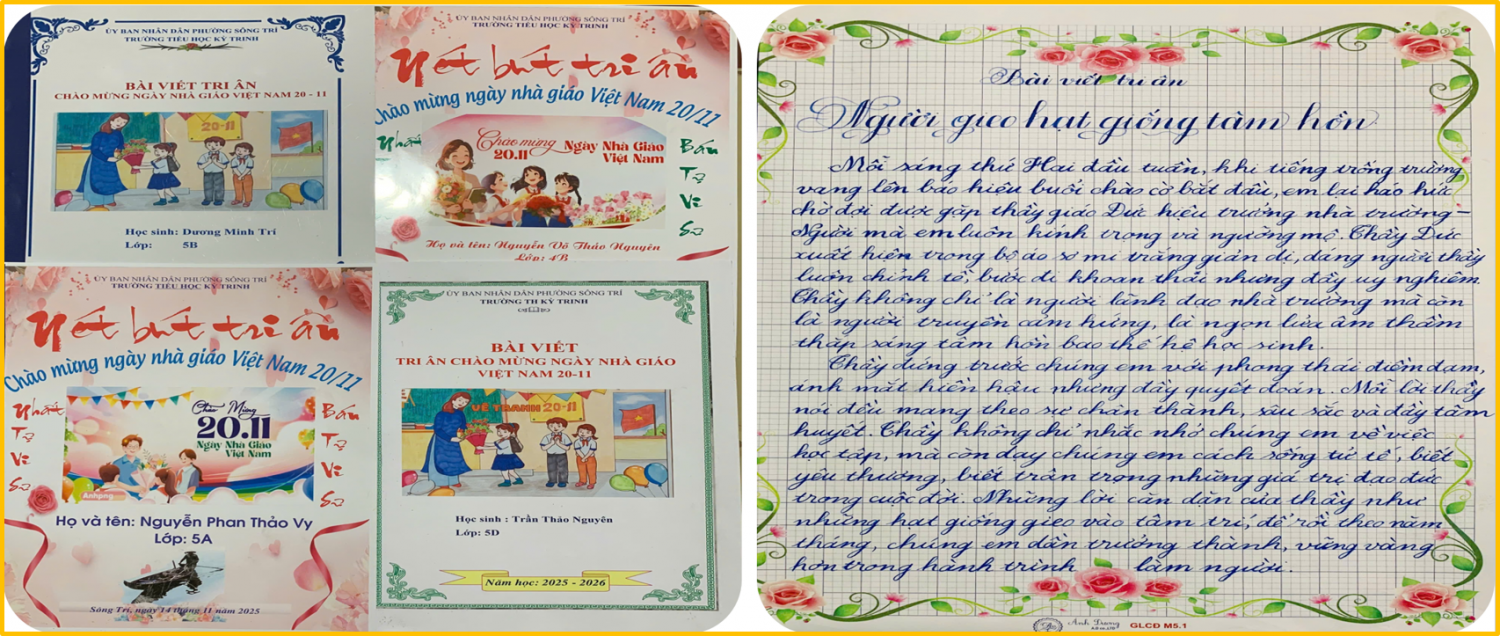 ỦY BAN NHÂN DÂN PHƯỜNG SÔNG TRÍ
TRƯỜNG TIỂU HỌC KỲ TRINH
BÀI VIẾT TRI ÂN
CHÀO MỪNG NGÀY NHÀ GIÁO VIỆT NAM 20 - 11
20-11
Học sinh: Dương Minh Trí
Lớp: 5B
ỦY BAN NHÂN DÂN PHƯỜNG SÔNG TRÍ
TRƯỜNG TIỂU HỌC KỲ TRINH
Nét bút tri ân
Chào mừng ngày nhà giáo Việt Nam 20/11
Nhất
Bán
Tự
Vi
Sư
Chào mừng
20.11
Ngày Nhà Giáo
Việt Nam
Họ và tên: Nguyễn Võ Thảo Nguyên
Lớp: 4B
ỦY BAN NHÂN DÂN PHƯỜNG SÔNG TRÍ
TRƯỜNG TIỂU HỌC KỲ TRINH
Nét bút tri ân
Chào mừng ngày nhà giáo Việt Nam 20/11
Nhất
Tự
Vi
Sư
Chào Mừng
20.11
Ngày Nhà Giáo
Việt Nam
Anhpng
Bán
Tự
Vi
Sư
Họ và tên: Nguyễn Phan Thảo Vy
Lớp: 5A
Sông Trí, ngày 14 tháng 11 năm 2025
ỦY BAN NHÂN DÂN PHƯỜNG SÔNG TRÍ
TRƯỜNG TH KỲ TRINH
BÀI VIẾT
TRI ÂN CHÀO MỪNG NGÀY NHÀ GIÁO
VIỆT NAM 20-11
VẼ TRANH 20-11
Học sinh : Trần Thảo Nguyên
Lớp: 5D
Năm học: 2025 - 2026
Bài viết tri ân
Người gieo hạt giống tâm hồn
Mỗi sáng thứ Hai đầu tuần, khi tiếng trống trường
vang lên báo hiệu buổi chào cờ bắt đầu, em lại háo hức
chờ đợi được gặp thầy giáo Đức hiệu trưởng nhà trường –
Người mà em luôn kính trọng và ngưỡng mộ. Thầy Đức
xuất hiện trong bộ áo sơ mi trắng giản dị, dáng người thầy
luôn chỉnh tề, bước đi khoan thai nhưng đầy uy nghiêm.
Thầy không chỉ là người lãnh đạo nhà trường mà còn
là người truyền cảm hứng, là ngọn lửa âm thầm
thắp sáng tâm hồn bao thế hệ học sinh.
Thầy đứng trước chúng em với phong thái điềm đạm,
ánh mắt hiền hậu nhưng đầy quyết đoán. Mỗi lời thầy
nói đều mang theo sự chân thành, sâu sắc và đầy tâm
huyết. Thầy không chỉ nhắc nhở chúng em về việc
học tập, mà còn dạy chúng em cách sống tử tế, biết
yêu thương, biết trân trọng những giá trị đạo đức
trong cuộc đời. Những lời căn dặn của thầy như
những hạt giống gieo vào tâm trí, để rồi theo năm
tháng, chúng em dần trưởng thành, vững vàng
hơn trong hành trình làm người.
Ánh Dương
GLCD M5.1